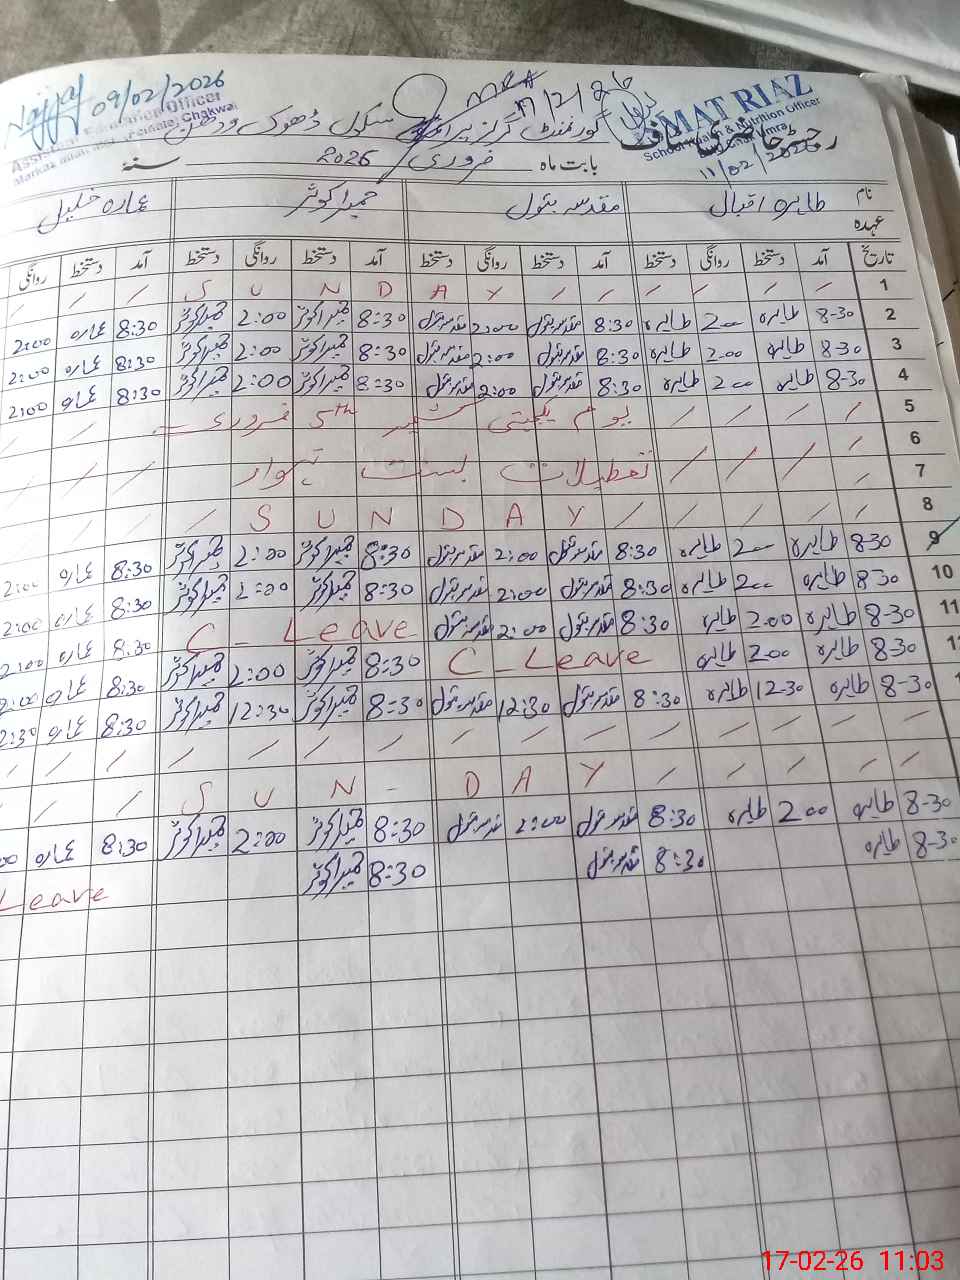 09/02/2026
Assistant Education Officer
Markaz (Female) Chakwal
MEA
17/2/26
MAT RIAZ
School Health & Nutrition Officer
11/02/2026
گورنمنٹ گرلز پرائمری سکول ڈھوک
رجسٹر حاضری سٹاف
بابت ماہ فروری 2026 سنہ
نام طاہرہ اقبال مقدسہ بتول حمیرا کوثر عمارہ خلیل
عہدہ
تاریخ آمد دستخط روانگی دستخط آمد دستخط روانگی دستخط آمد دستخط روانگی دستخط آمد دستخط روانگی
1 / / / / / / S U N D A Y / / /
2 8-30 طاہرہ 200 طاہرہ 8:30 مقدسہ بتول 2:00 مقدسہ بتول 8:30 حمیرا کوثر 2:00 حمیرا کوثر 8:30 عمارہ 2:00
3 8-30 طاہرہ 200 طاہرہ 8:30 مقدسہ بتول 2:00 مقدسہ بتول 8:30 حمیرا کوثر 2:00 حمیرا کوثر 8:30 عمارہ 2:00
4 8-30 طاہرہ 200 طاہرہ 8:30 مقدسہ بتول 2:00 مقدسہ بتول 8:30 حمیرا کوثر 2:00 حمیرا کوثر 8:30 عمارہ 2:00
5 / / / / یوم یکجہتی کشمیر 5th فروری
6
7 / / / / تعطیلات بسنت تہوار / / /
8 / / / / / S U N D A Y / / / /
9 8-30 طاہرہ 200 طاہرہ 8:30 مقدسہ بتول 2:00 مقدسہ بتول 8:30 حمیرا کوثر 2:00 حمیرا کوثر 8:30 عمارہ 2:00
10 8-30 طاہرہ 200 طاہرہ 8:30 مقدسہ بتول 2:00 مقدسہ بتول 8:30 حمیرا کوثر 2:00 حمیرا کوثر 8:30 عمارہ 2:00
11 8-30 طاہرہ 2.00 طاہرہ 8:30 مقدسہ بتول 2:00 مقدسہ بتول C-Leave 8:30 عمارہ 2:00
8-30 طاہرہ 2.00 طاہرہ C-Leave 8:30 حمیرا کوثر 2:00 حمیرا کوثر 8:30 عمارہ 2:00
8-30 طاہرہ 12-30 طاہرہ 8:30 مقدسہ بتول 12:30 مقدسہ بتول 8:30 حمیرا کوثر 12:30 حمیرا کوثر 8:30 عمارہ
/ / / / / / / / / / / / / /
/ / / / / S U N - D A Y / /
8-30 طاہرہ 2.00 طاہرہ 8:30 مقدسہ بتول 2:00 مقدسہ بتول 8:30 حمیرا کوثر 2:00 حمیرا کوثر 8:30 عمارہ
8-30 طاہرہ 8:30 مقدسہ بتول 8:30 حمیرا کوثر Leave
17-02-26 11:03